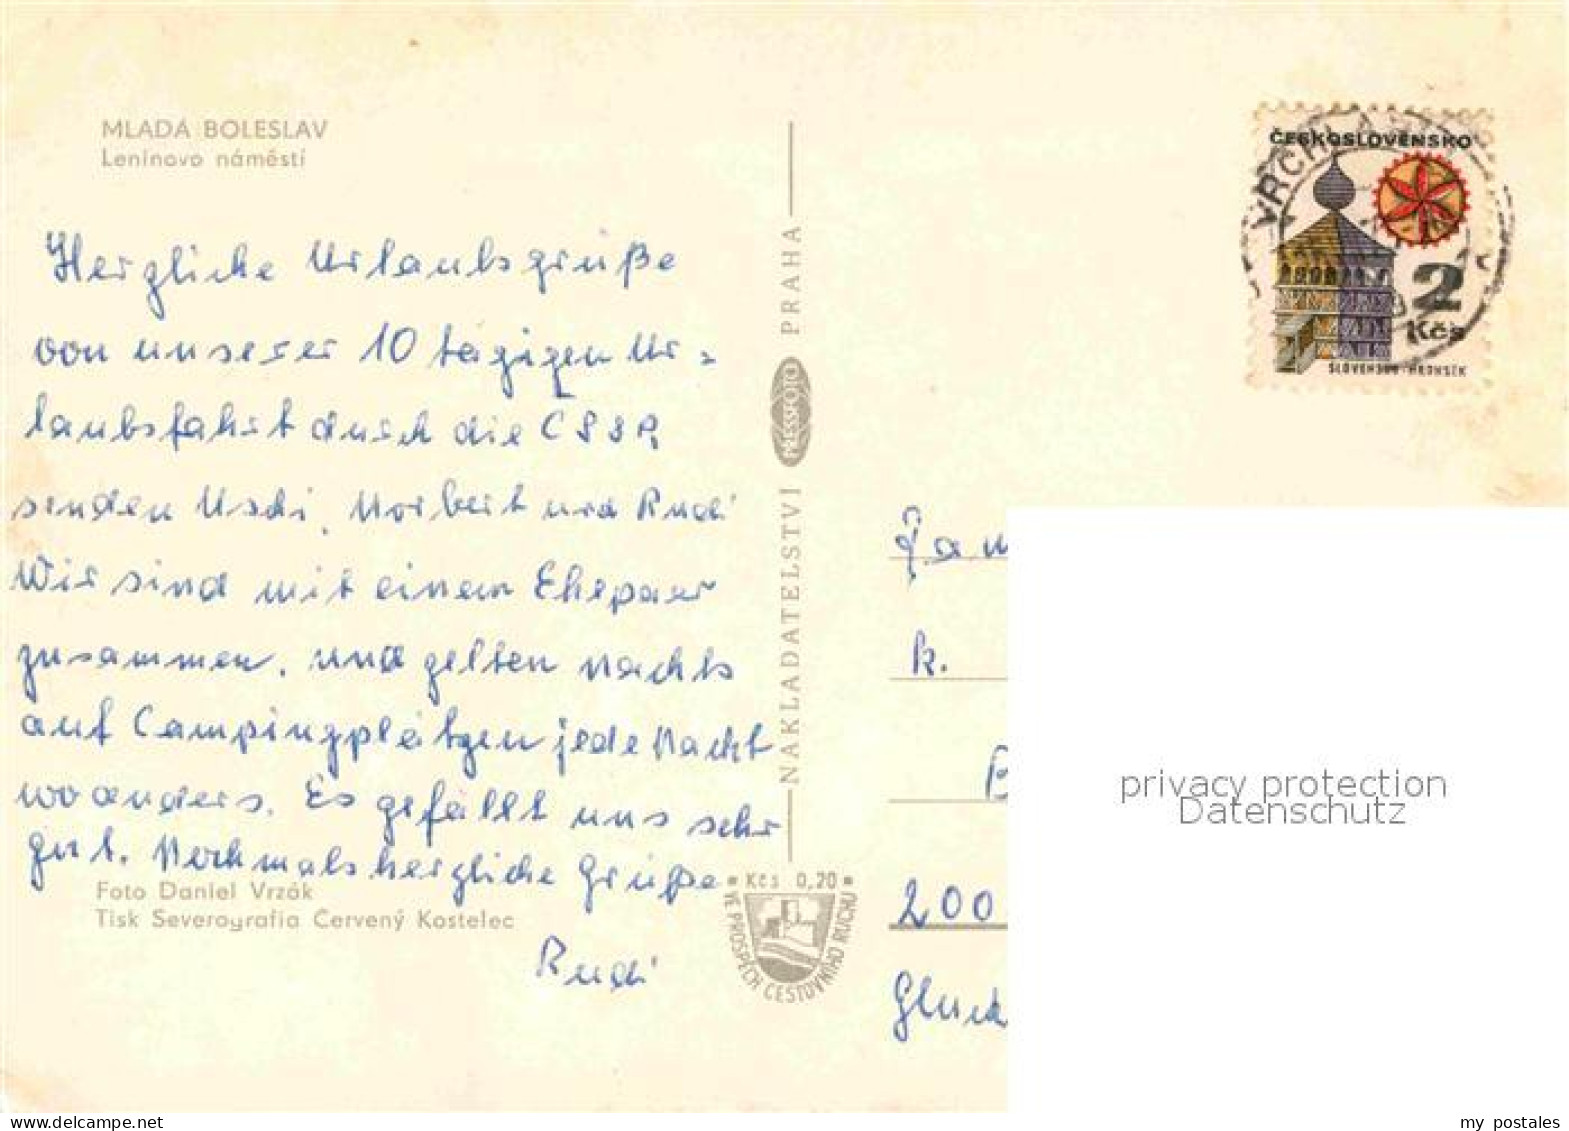 MLADÁ BOLESLAV
Leninovo náměstí
Herzliche Urlaubsgrüße
von unserer 10 tägigen Ur=
laubsfahrt durch die CSSR
senden Uschi, Norbert und Rudi
Wir sind mit einem Ehepaar
zusammen, und zelten nachts
auf Campingplätzen jede Nacht
wo anders. Es gefällt uns sehr
gut. Nochmals herzliche Grüße
Rudi
Foto Daniel Vrzák
Tisk Severografia Červený Kostelec
NAKLADATELSTVÍ PRAHA
* Kčs 0,20 *
VE PROSPĚCH CESTOVNÍHO RUCHU
ČESKOSLOVENSKO
2
Kčs
SLOVENSKO-HRONSEK
Fam
k.
B
200
Glück
privacy protection
Datenschutz
my postales